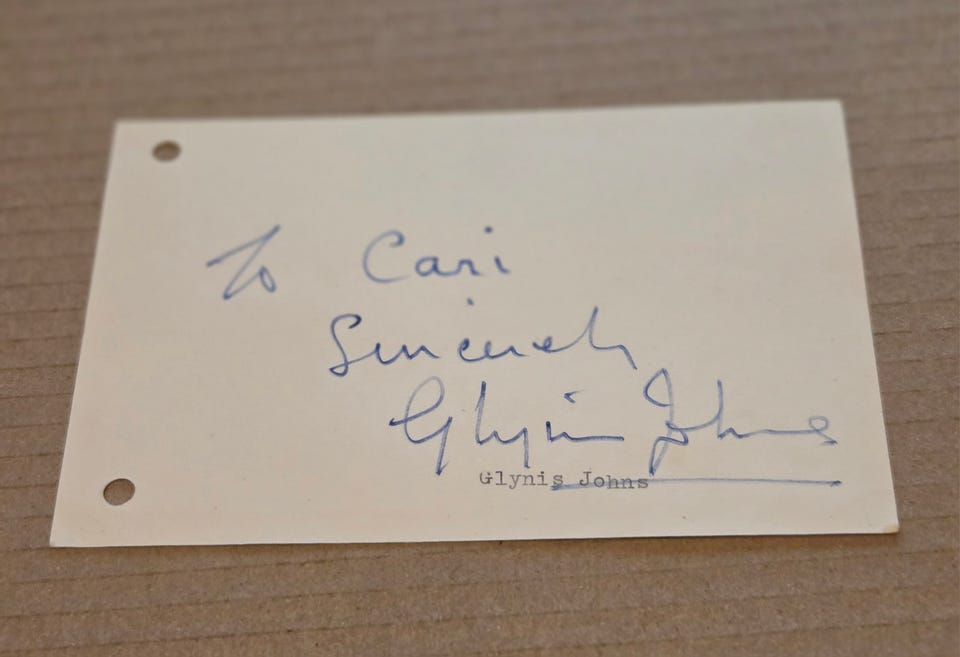 To Cari
Sincerely
Glynis Johns
Glynis Johns